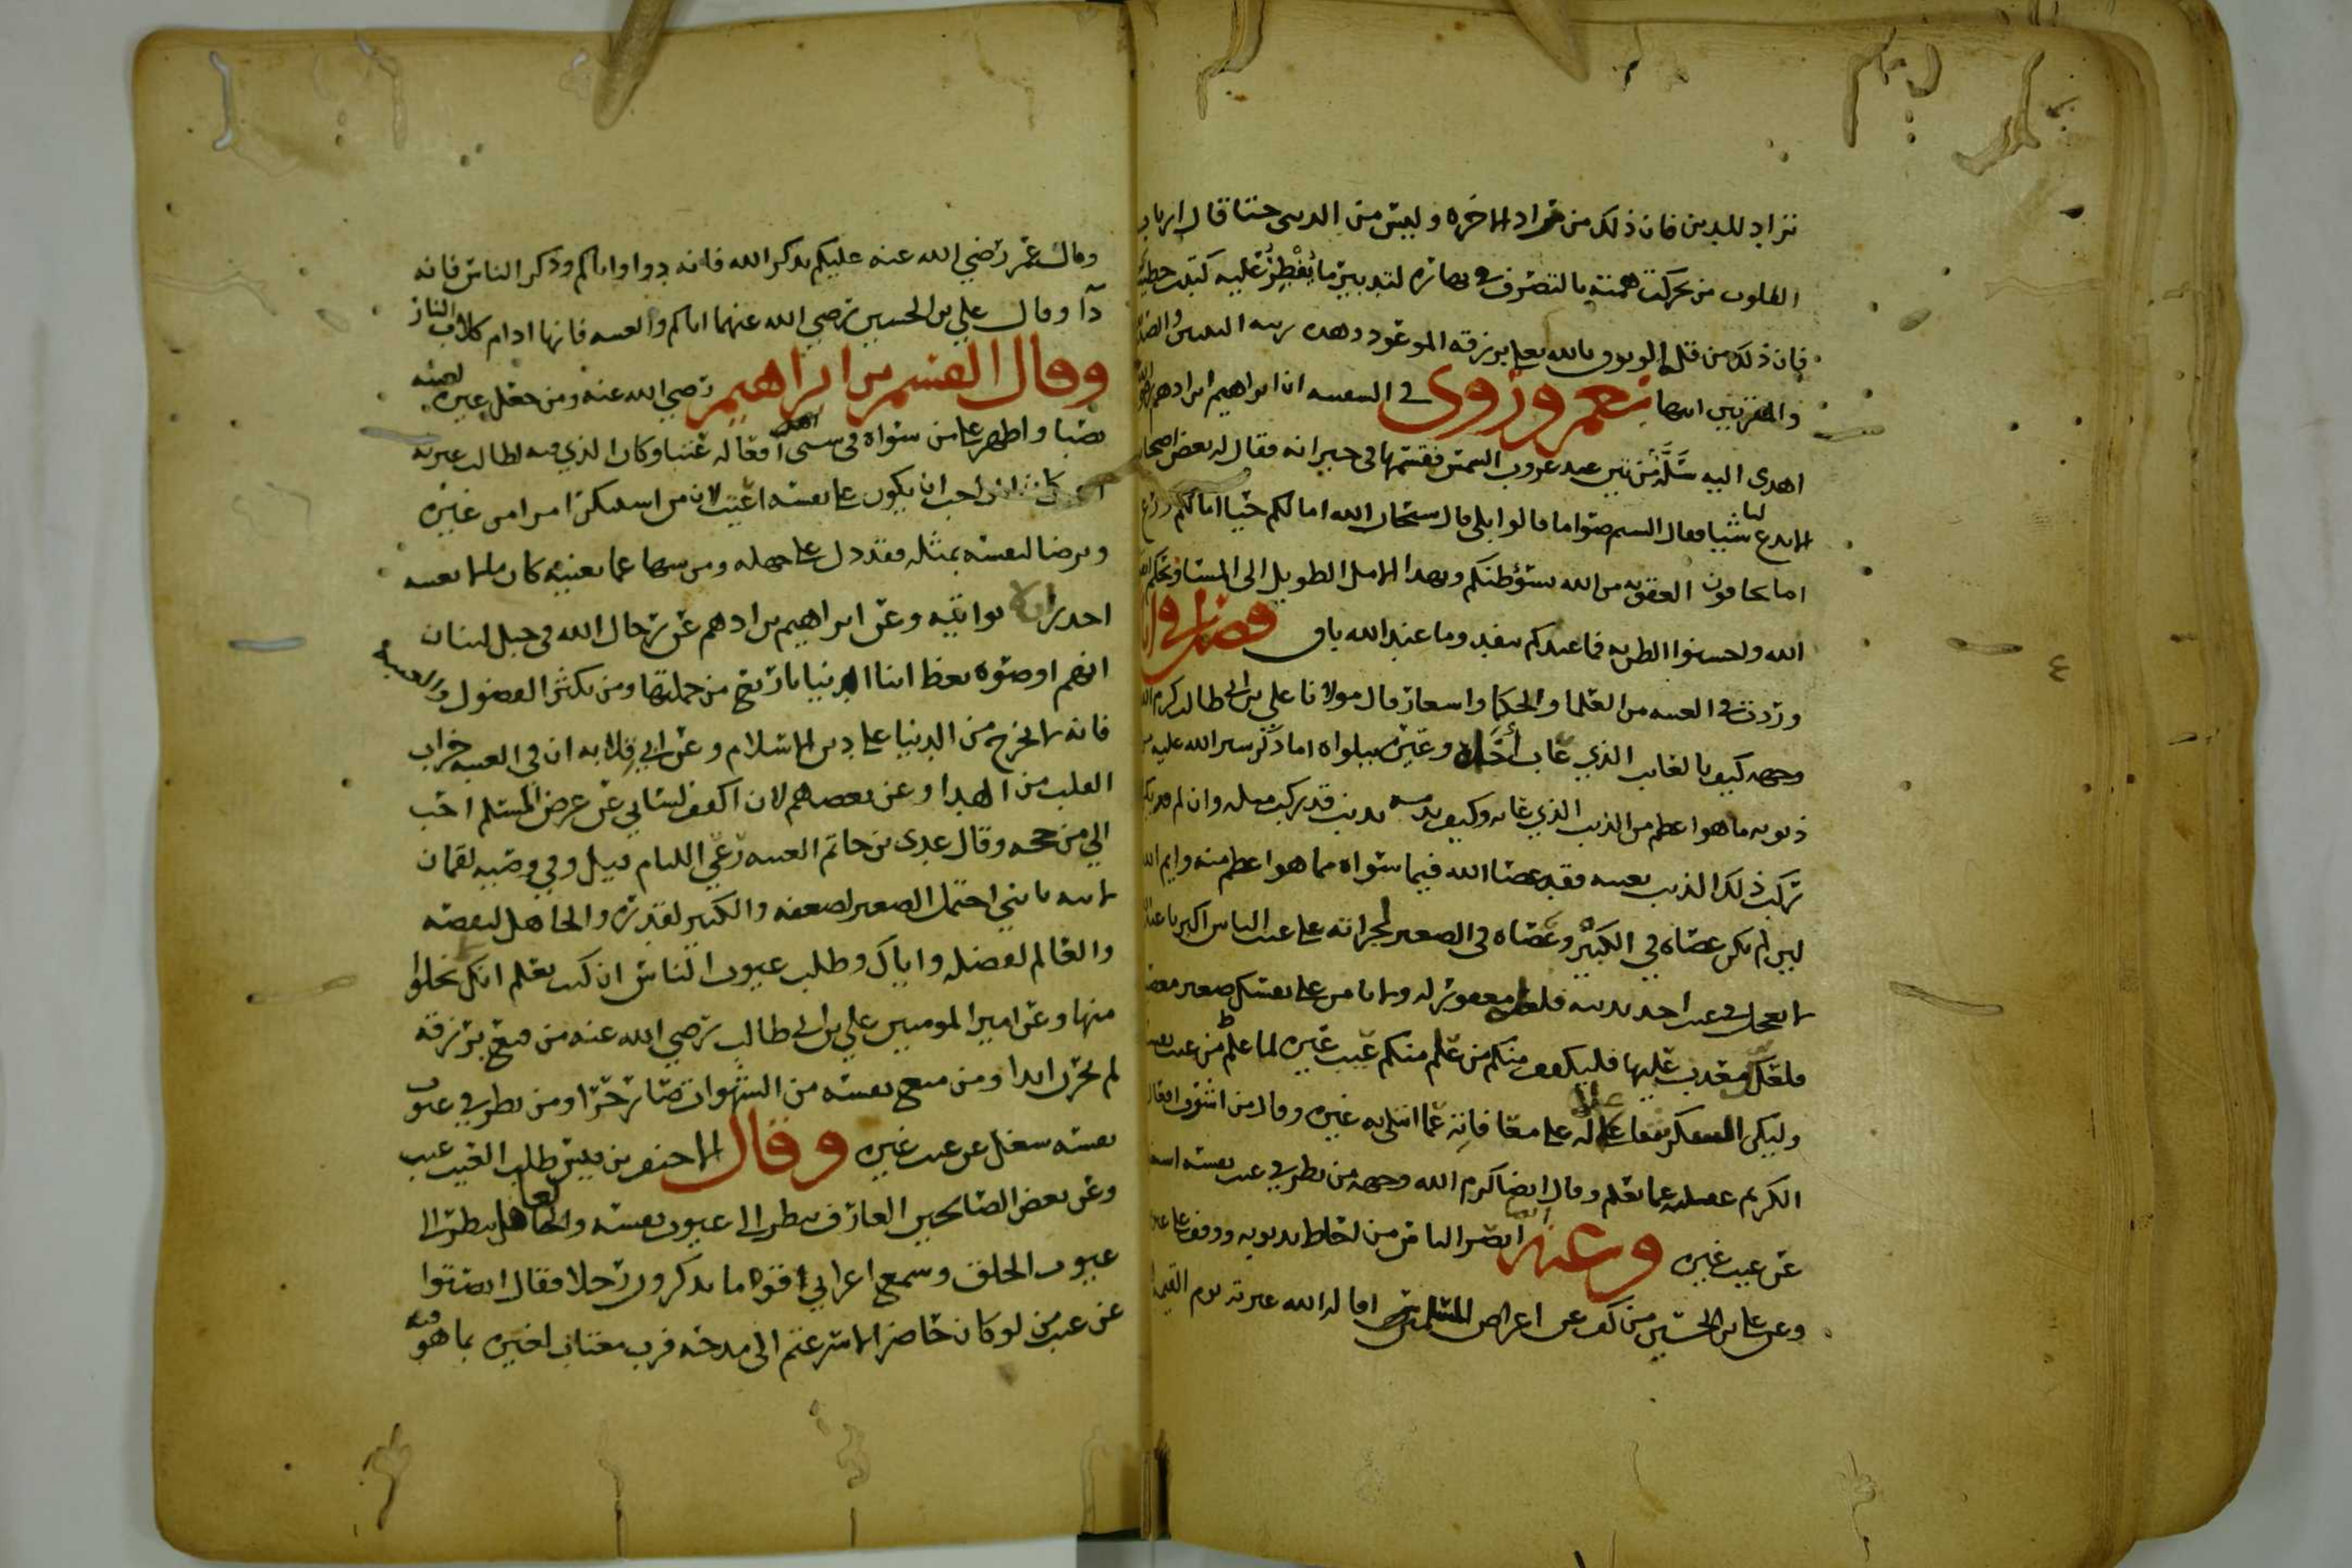 تزاد للدين فان ذلك من مراد الاخره وليس من الدنيا حتما قال ارباب
القلوب من تحركت همته بالتصرف في نهاره لتدبير ما يفطر عليه كتبت خطيئة
فان ذلك من قلة الوثوق بالله تعلى برزقه الموعود وهذه رتبة النبيين والصد
والمقربين انتها نعم وروى في ان ابراهيم بن ادهم
اهدى اليه سلة من تين عند غروب الشمس فقسمها في جيرانه فقال له بعض اصحا
الا تدع لنا شيا فقال الستم صواما قالوا بلى قال سبحان الله اما لكم حيا اما لكم
اما تخافون العقوبه من الله الامل الطويل الى المسا
الله واحسنوا الظن به فما عندكم ينفد وما عند الله باق فصل في
وردت في الغيبه من العلما والحكما واشعار قال مولانا علي بن ابي طالب كرم الله
وجهه كيف بالغايب الذي غاب اخاه وعيره ببلواه اما ذكر ستر الله عليه من
ذنوبه ما هو اعظم من الذنب الذي عابه وكيف يذمه بذنب قد ركب مثله وان لم يكن
ركب ذلك الذنب بعينه فقد عصا الله فيما سواه مما هو اعظم منه وايم الله
لين لم يكن عصاه في الكبير وعصاه في الصغير لجراته على عيب الناس اكبر يا عبد الله
لا تعجل في عيب احد بذنبه فلعله مغفور له ولا تامن على نفسك صغير معصية
فلعلك معذب عليها فليكفف منكم من علم منكم عيب غيره لما علم من عيب نفسه
وليكن الشكر شاغلا له على معافاته عما ابتلى به غيره وقال من اشرف افعال
الكريم غفلته عما تعلم وقال ايضا كرم الله وجهه من نظر في عيب نفسه اشتغل
عن عيب غيره وعنه ايضا ابصر الناس من احاط بذنوبه ووقف على عيوبه
وعن علي بن الحسين من كف عن اعراض المسلمين اقاله الله عثرته يوم القيمة
وقال عمر رضي الله عنه عليكم بذكر الله فانه دوا واياكم وذكر الناس فانه
دآ وقال علي بن الحسين رضي الله عنهما اياكم والغيبه فانها ادام كلاب النار
وقال القسم بن ابراهيم رضي الله عنه ومن جعل غيره لعينه
نصبا واظهر على من سواه في شي افعاله عتبا وكان الذي فيه لطالب عثرته
احب ان يكون على نفسه اعتب لان من استنكر امرا من غيره
ويرضا لنفسه بمثله فقد دل على جهله ومن سها عما يعنيه كان
احد وعن ابراهيم بن ادهم عن رجال الله في جبل لبنان
انهم اوصوه بعظ ابنا الدنيا باربع من جملتها ومن يكثر الفضول والغيبة
فانه لا يخرج من الدنيا على دين الاسلام وعن ابي قلابه ان في الغيبه خراب
القلب من الهدا وعن بعضهم لان اكف لساني عن عرض المسلم احب
الي من حجه وقال عدى بن حاتم الغيبه رعي الليام قيل وفي وصيه لقمان
لابنه يا بني احتمل الصغير لضعفه والكبير لقدره والجاهل لنقصه
والعالم لفضله واياك وطلب عيوب الناس ان كنت تعلم انك تخلوا
منها وعن امير المومنين علي بن ابي طالب رضي الله عنه من قنع برزقه
لم يحزن ابدا ومن منع نفسه من الشهوات صار حرا ومن نظر في عيوب
نفسه شغل عن عيب غيره وقال الاحنف بن قيس طلب العيب عيب
وعن بعض الصالحين العارف ينظر الى عيوب نفسه والجاهل ينظر الى
عيوب الخلق وسمع اعرابي اقواما يذكرون رجلا فقال انصتوا
عن عيب من لو كان حاضرا لاسرعتم الى مدحه فرب مغتاب لغيره بما هو فيه